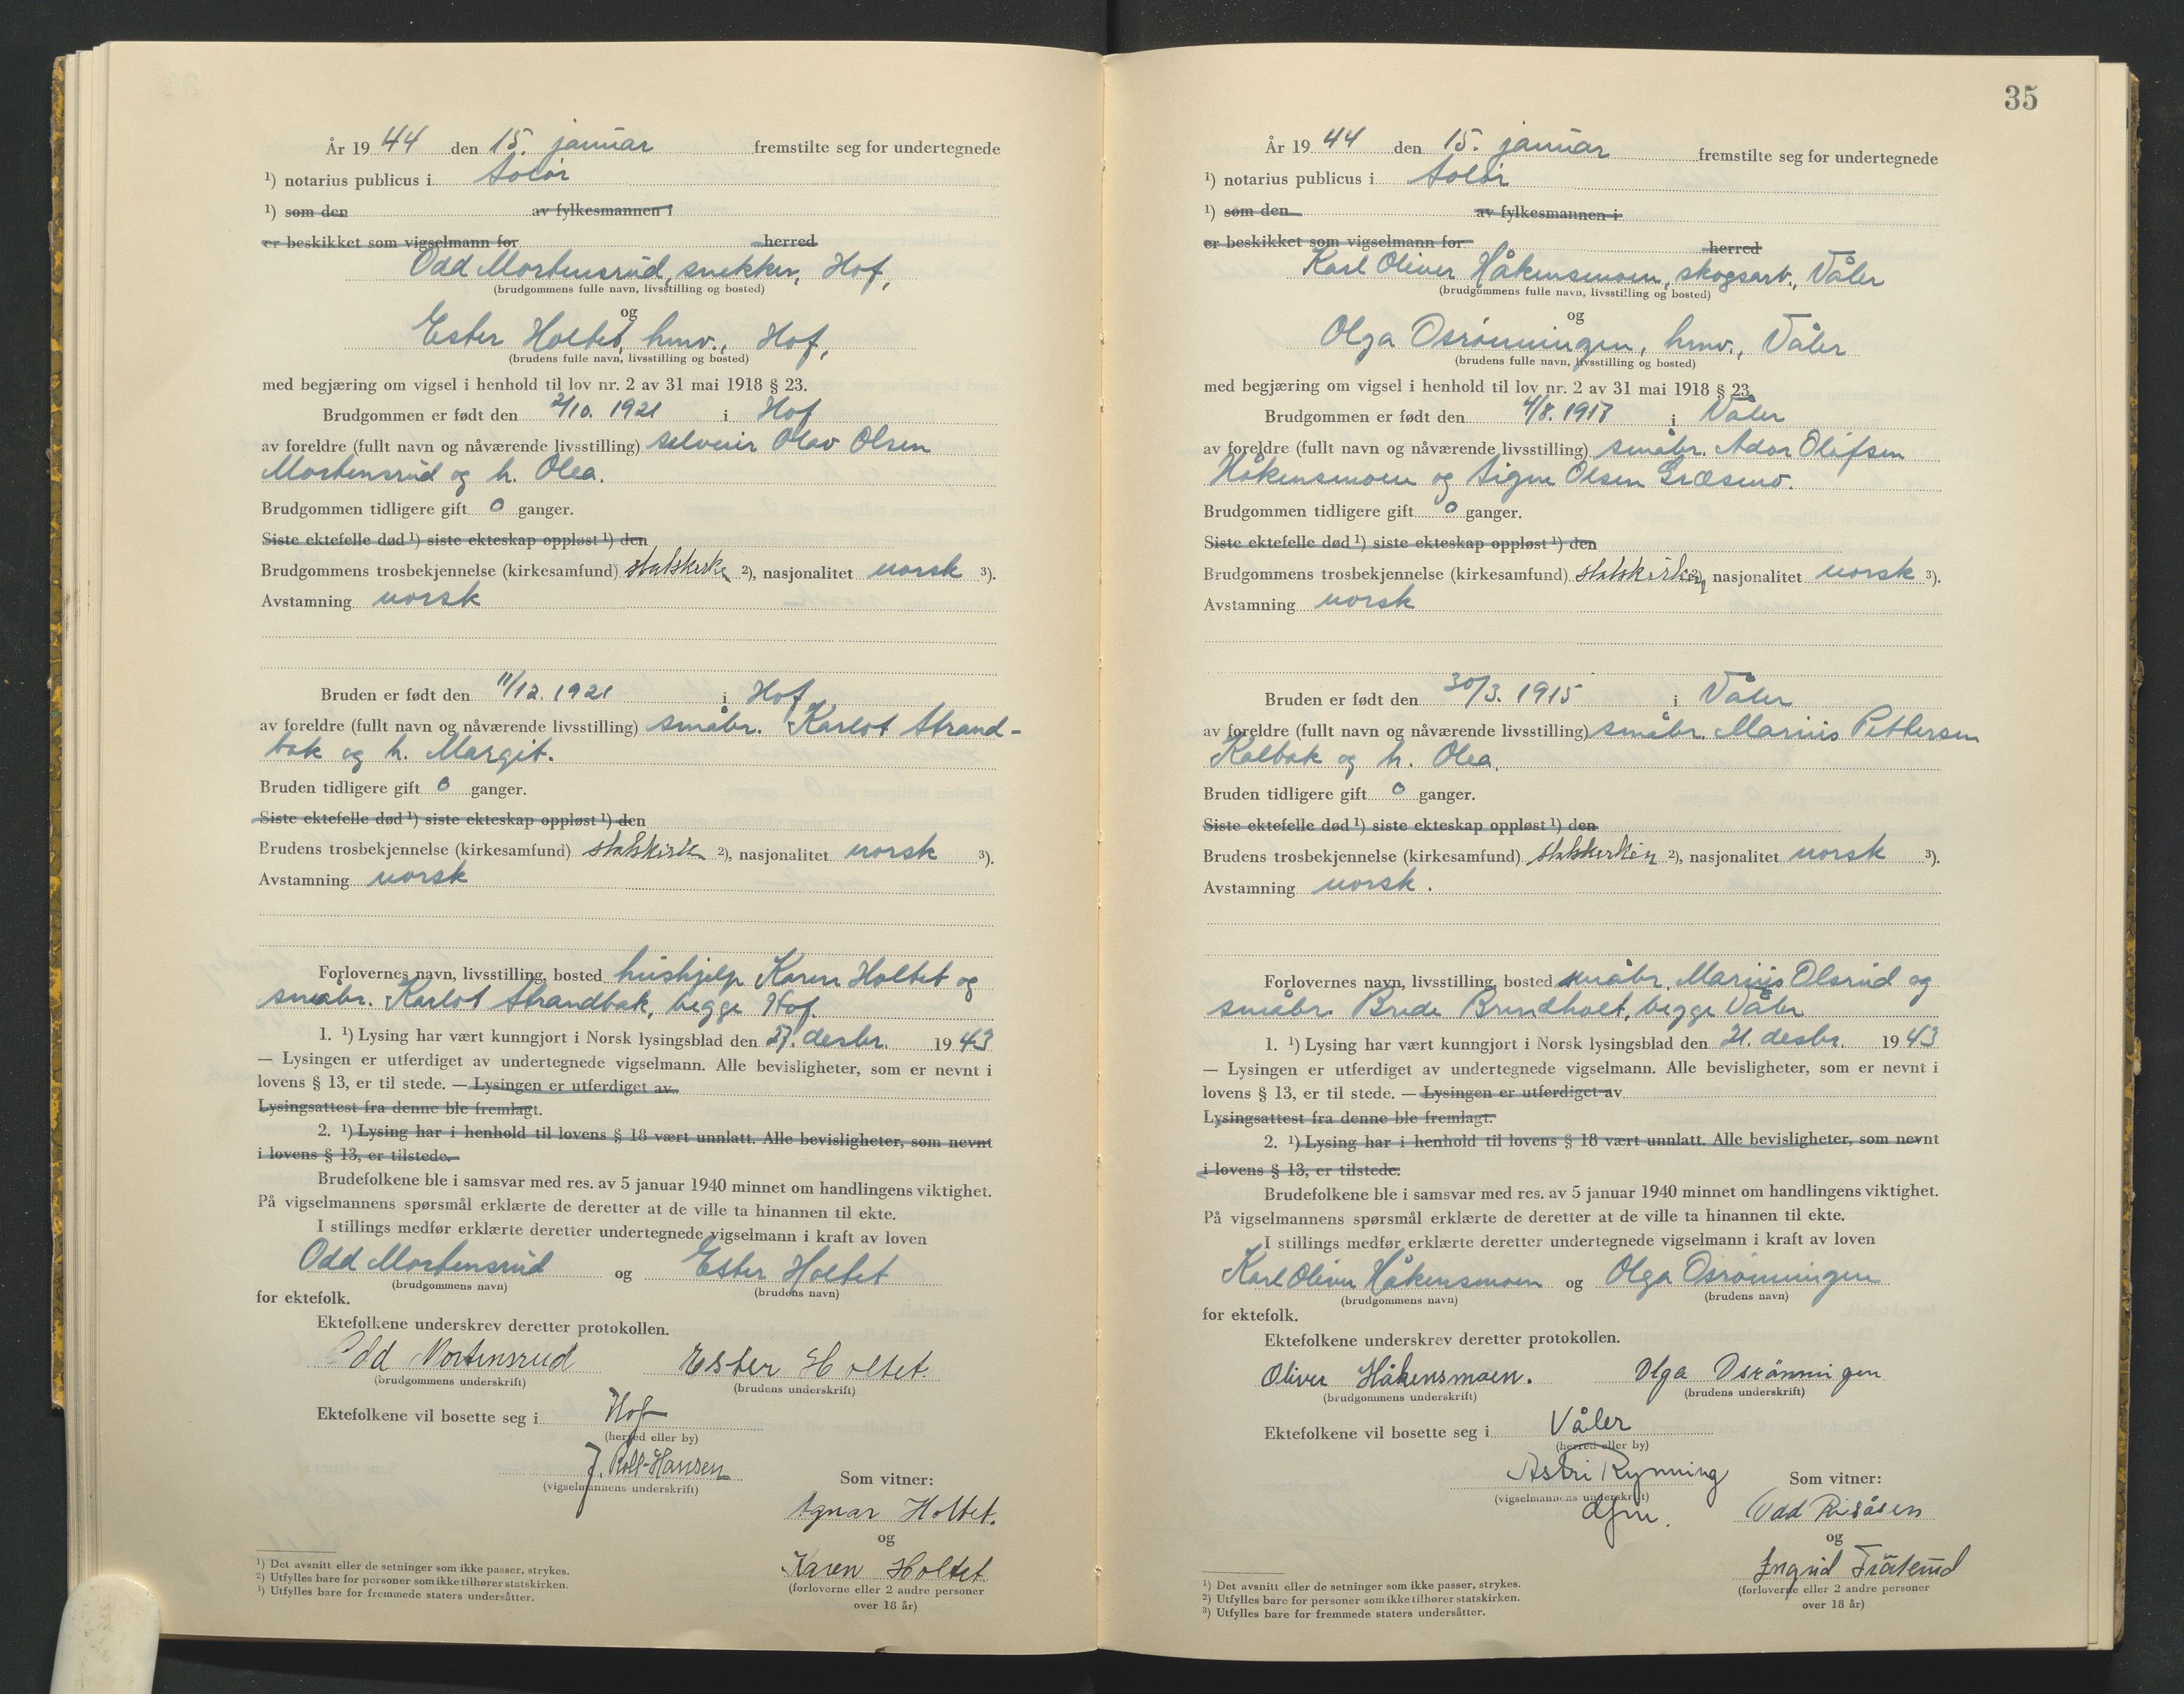 År 19 44 den 15. januar fremstilte seg for undertegnede
¹) notarius publicus i Solør
¹) som den av fylkesmannen i
er beskikket som vigselmann for herred
Odd Mortensrud, snekker, Hof,
(brudgommens fulle navn, livsstilling og bosted)
og
Ester Holtet, hmv., Hof,
(brudens fulle navn, livsstilling og bosted)
med begjæring om vigsel i henhold til lov nr. 2 av 31 mai 1918 § 23.
Brudgommen er født den 2/10. 1921 i Hof
av foreldre (fullt navn og nåværende livsstilling) selveier Olav Olsen
Mortensrud og h. Olea.
Brudgommen tidligere gift 0 ganger.
Siste ektefelle død ¹) siste ekteskap oppløst ¹) den
Brudgommens trosbekjennelse (kirkesamfund) statskirken ²), nasjonalitet norsk ³).
Avstamning norsk
Bruden er født den 11/12. 1921 i Hof
av foreldre (fullt navn og nåværende livsstilling) småbr. Karlot Strand-
bak og h. Margit.
Bruden tidligere gift 0 ganger.
Siste ektefelle død ¹) siste ekteskap oppløst ¹) den
Brudens trosbekjennelse (kirkesamfund) statskirken ²), nasjonalitet norsk ³).
Avstamning norsk
Forlovernes navn, livsstilling, bosted hushjelp Karen Holtet og
småbr. Karlot Strandbak, begge Hof.
1. ¹) Lysing har vært kunngjort i Norsk lysingsblad den desbr. 19 43
— Lysingen er utferdiget av undertegnede vigselmann. Alle bevisligheter, som er nevnt i
lovens § 13, er til stede. — Lysingen er utferdiget av
Lysingsattest fra denne ble fremlagt.
2. ¹) Lysing har i henhold til lovens § 18 vært unnlatt. Alle bevisligheter, som nevnt
i lovens § 13, er tilstede.
Brudefolkene ble i samsvar med res. av 5 januar 1940 minnet om handlingens viktighet.
På vigselmannens spørsmål erklærte de deretter at de ville ta hinannen til ekte.
I stillings medfør erklærte deretter undertegnede vigselmann i kraft av loven
Odd Mortensrud og Ester Holtet
(brudgommens navn) (brudens navn)
for ektefolk.
Ektefolkene underskrev deretter protokollen.
Odd Mortensrud Ester Holtet.
(brudgommens underskrift) (brudens underskrift)
Ektefolkene vil bosette seg i Hof
(herred eller by)
J. Roll-Hansen
(vigselmannens underskrift)
Som vitner:
Agnar Holtet.
og
Karen Holtet
(forloverne eller 2 andre personer
over 18 år)
¹) Det avsnitt eller de setninger som ikke passer, strykes.
²) Utfylles bare for personer som ikke tilhører statskirken.
³) Utfylles bare for fremmede staters undersåtter.
35
År 19 44 den 15. januar fremstilte seg for undertegnede
¹) notarius publicus i Solør
¹) som den av fylkesmannen i
er beskikket som vigselmann for herred
Karl Oliver Håkensmoen, skogsarb., Våler
(brudgommens fulle navn, livsstilling og bosted)
og
Olga Osrønningen, hmv., Våler
(brudens fulle navn, livsstilling og bosted)
med begjæring om vigsel i henhold til lov nr. 2 av 31 mai 1918 § 23.
Brudgommen er født den 4/8. i Våler
av foreldre (fullt navn og nåværende livsstilling) småbr. Ador Olufsen
Håkensmoen og Signe Olsen Græsmo.
Brudgommen tidligere gift 0 ganger.
Siste ektefelle død ¹) siste ekteskap oppløst ¹) den
Brudgommens trosbekjennelse (kirkesamfund) statskirken ²), nasjonalitet norsk ³).
Avstamning norsk
Bruden er født den 30/3. 1915 i Våler
av foreldre (fullt navn og nåværende livsstilling) småbr. Marius Pettersen
Kalbak og h. Olea.
Bruden tidligere gift 0 ganger.
Siste ektefelle død ¹) siste ekteskap oppløst ¹) den
Brudens trosbekjennelse (kirkesamfund) statskirken ²), nasjonalitet norsk ³).
Avstamning norsk.
Forlovernes navn, livsstilling, bosted småbr. Marius Olsrud og
småbr. Brede Brendholt, begge Våler
1. ¹) Lysing har vært kunngjort i Norsk lysingsblad den 21. desbr. 19 43
— Lysingen er utferdiget av undertegnede vigselmann. Alle bevisligheter, som er nevnt i
lovens § 13, er til stede. — Lysingen er utferdiget av
Lysingsattest fra denne ble fremlagt.
2. ¹) Lysing har i henhold til lovens § 18 vært unnlatt. Alle bevisligheter, som nevnt
i lovens § 13, er tilstede.
Brudefolkene ble i samsvar med res. av 5 januar 1940 minnet om handlingens viktighet.
På vigselmannens spørsmål erklærte de deretter at de ville ta hinannen til ekte.
I stillings medfør erklærte deretter undertegnede vigselmann i kraft av loven
Karl Oliver Håkensmoen og Olga Osrønningen
(brudgommens navn) (brudens navn)
for ektefolk.
Ektefolkene underskrev deretter protokollen.
Oliver Håkensmoen. Olga Osrønningen
(brudgommens underskrift) (brudens underskrift)
Ektefolkene vil bosette seg i Våler
(herred eller by)
Astri Rynning
(vigselmannens underskrift)
dfm.
Som vitner:
Odd Risåsen
og
Ingrid
(forloverne eller 2 andre personer
over 18 år)
¹) Det avsnitt eller de setninger som ikke passer, strykes.
²) Utfylles bare for personer som ikke tilhører statskirken.
³) Utfylles bare for fremmede staters undersåtter.